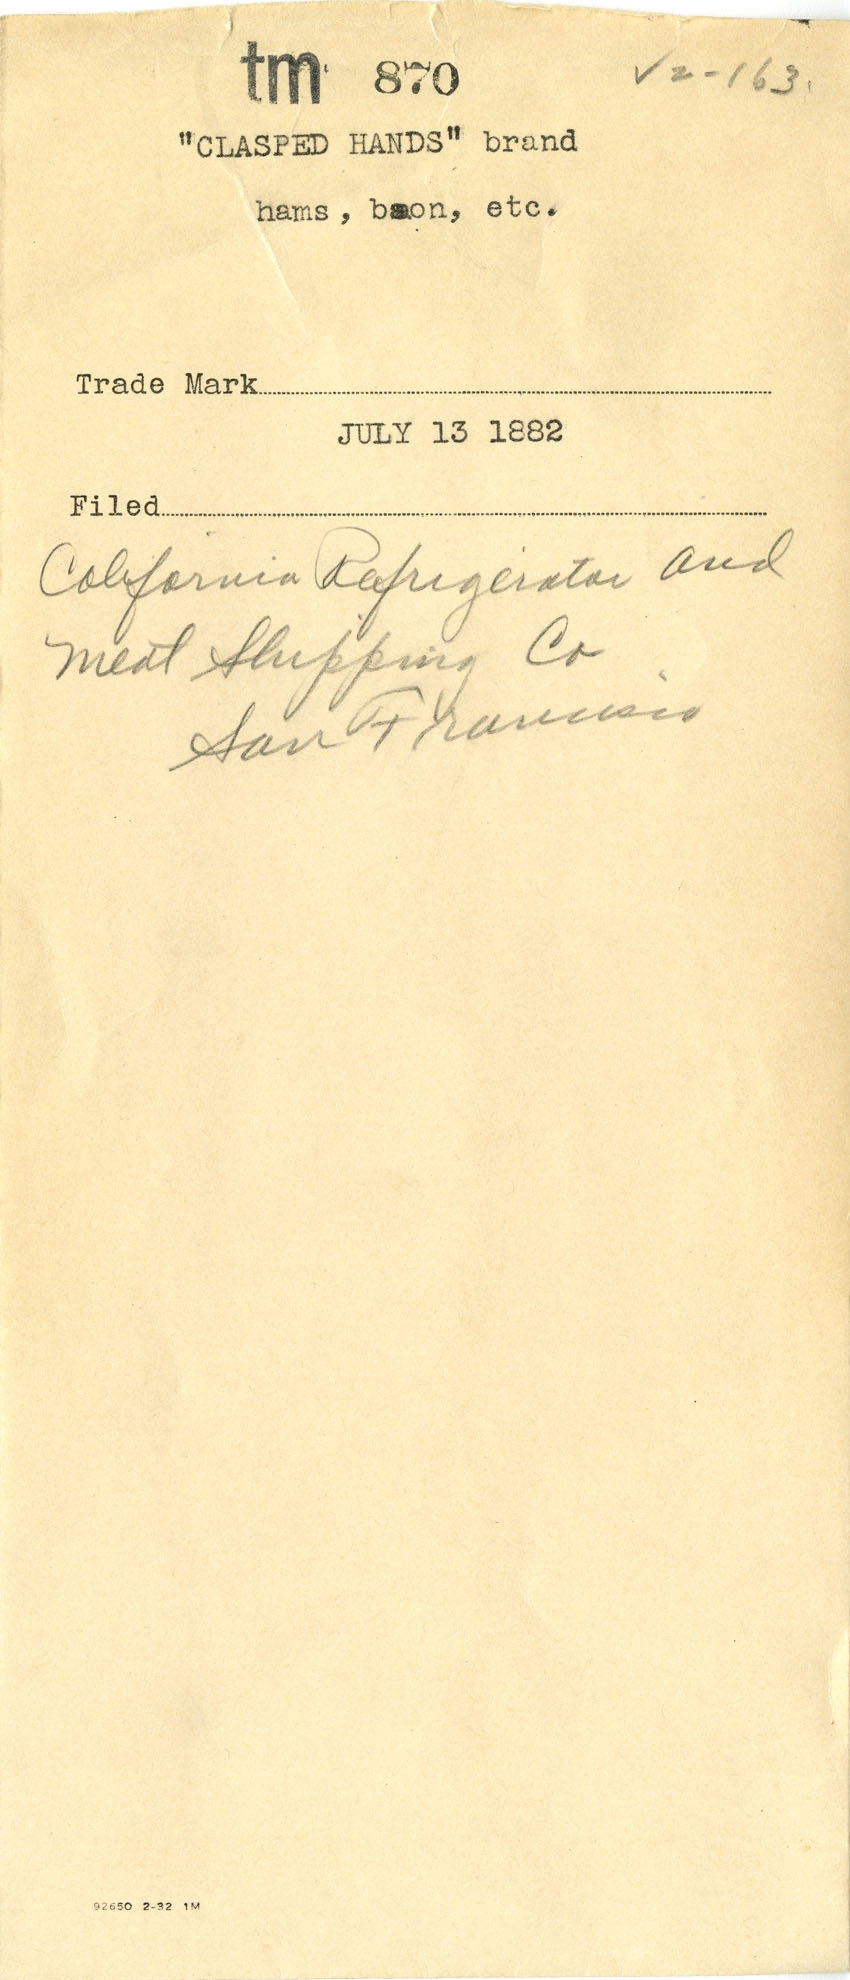 tm 870
V2-163
"CLASPED HANDS" brand
hams, bacon, etc.
Trade Mark
JULY 13 1882
Filed
California Refrigerator and
Meat Shipping Co
San Francisco
92650 2-32 1M